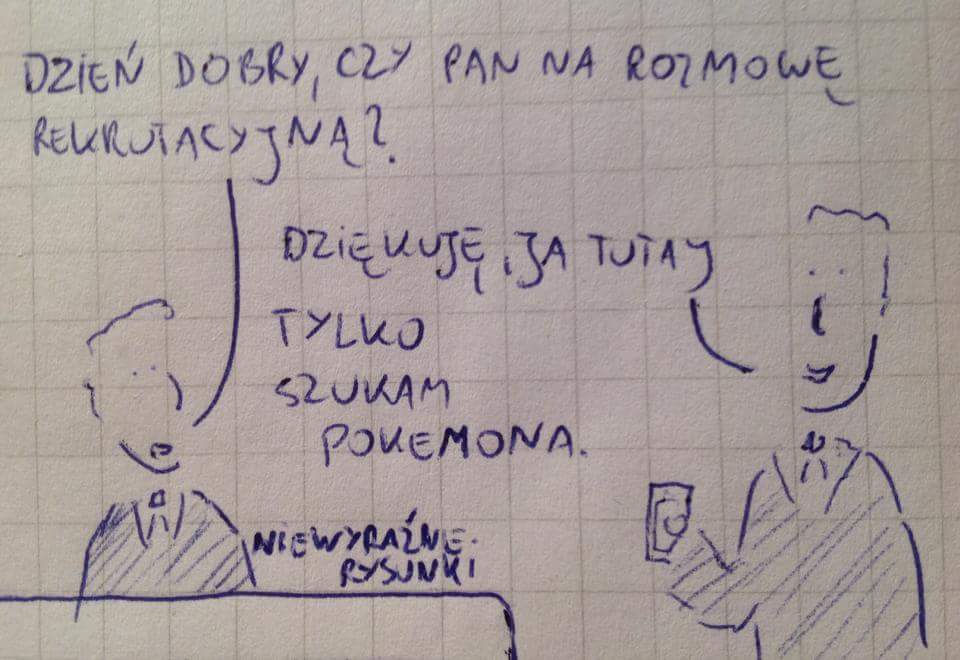 DZIEŃ DOBRY, CZY PAN NA ROZMOWĘ
REKRUTACYJNĄ?
DZIĘKUJĘ, JA TUTAJ
TYLKO
SZUKAM
POKEMONA.
NIEWYRAŹNE.
RYSUNKI